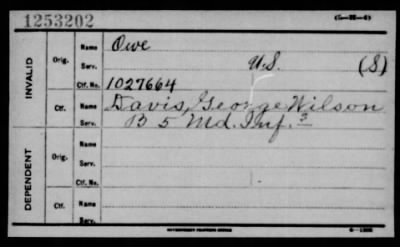 1253202
INVALID
Orig.
Name Owe
Serv. U.S. (S)
Ctf. No. 1027664
Ctf.
Name Davis, George Wilson
Serv. B 5 Md. Inf.
DEPENDENT
Orig.
Name
Serv.
Ctf. No.
Ctf.
Name
Serv.